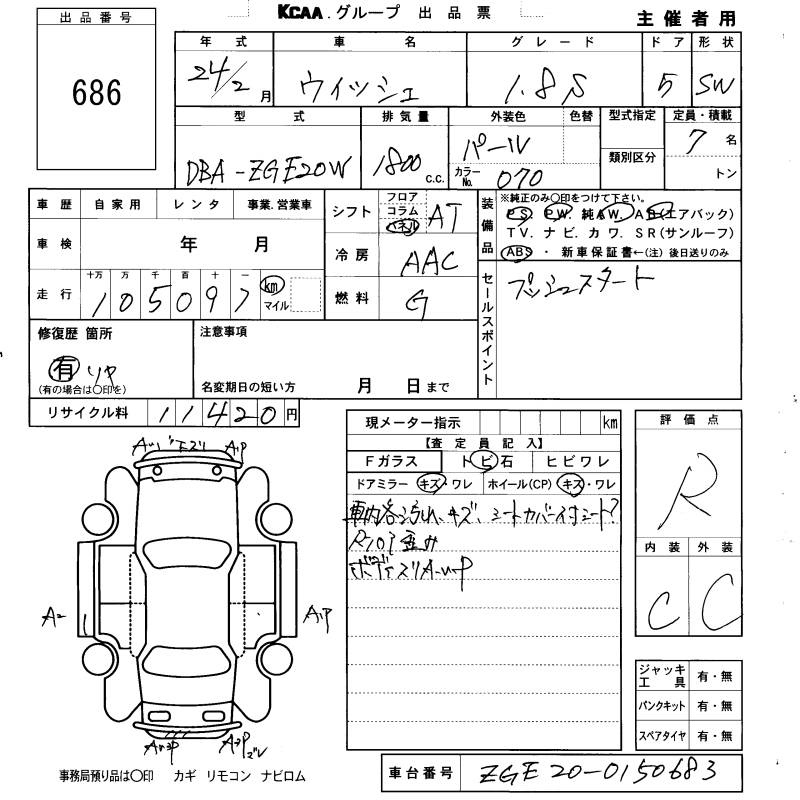 KCAA.グループ 出品票
主催者用
出品番号
686
年式 車名 グレード ドア 形状
24/2月 ウィッシュ 1.8S 5 SW
型式 排気量 外装色 色替 型式指定 定員・積載
DBA-ZGE20W 1800 c.c. パール 7名
カラーNo. 070 類別区分 トン
車歴 自家用 レンタ 事業.営業車
車検 年 月
走行 十万 万 千 百 十 一
105097 km マイル
シフト フロア コラム パネル AT
冷房 AAC
燃料 G
装備品 ※純正のみ○印をつけて下さい。
PS. PW. 純AW. AB(エアバック)
TV. ナビ. カワ. SR(サンルーフ)
ABS ・ 新車保証書←(注)後日送りのみ
セールスポイント
プッシュスタート
修復歴 箇所
有 リヤ
(有の場合は○印を)
注意事項
名変期日の短い方 月 日まで
リサイクル料 11420円
現メーター指示 km
【査定員記入】
Fガラス トビ石 ヒビワレ
ドアミラー キズ・ワレ ホイール(CP) キズ・ワレ
車内各汚れ、キズ、シートカバー付シート?
Rフロア歪み
ボデーズリA-UP
評価点
R
内装 外装
C C
ジャッキ工具 有・無
パンクキット 有・無
スペアタイヤ 有・無
A2
事務局預り品は○印 カギ リモコン ナビロム
車台番号 ZGE20-0150683